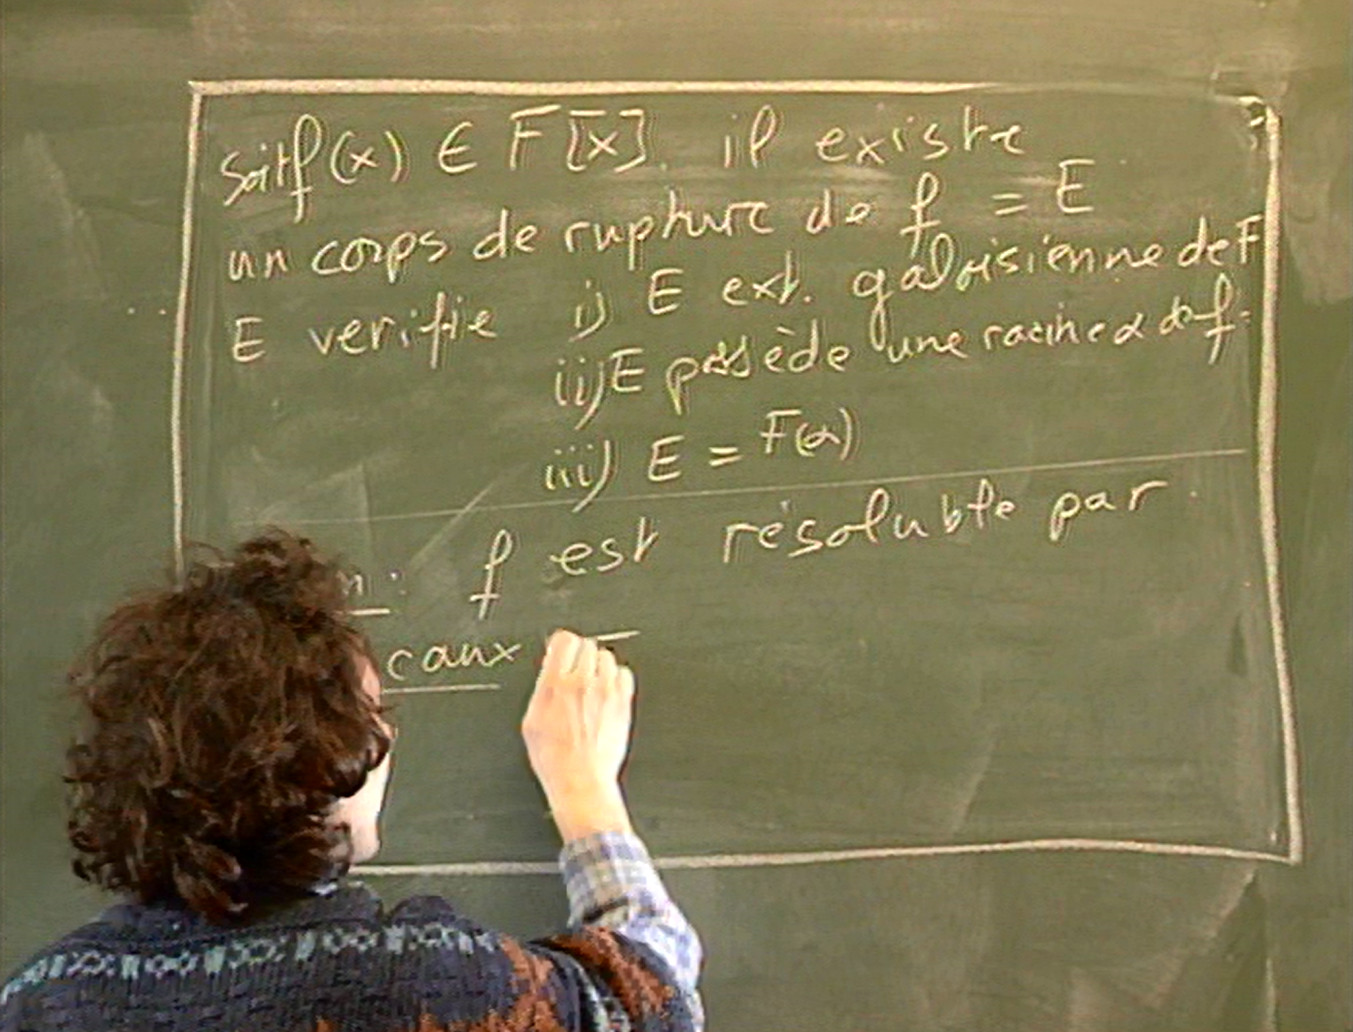 Soit f(x) ∈ F[x]. il existe
un corps de rupture de f = E
E verifie i) E ext. galoisienne de F
ii) E possède une racine α de f.
iii) E = F(α)
n : f est résoluble par
caux